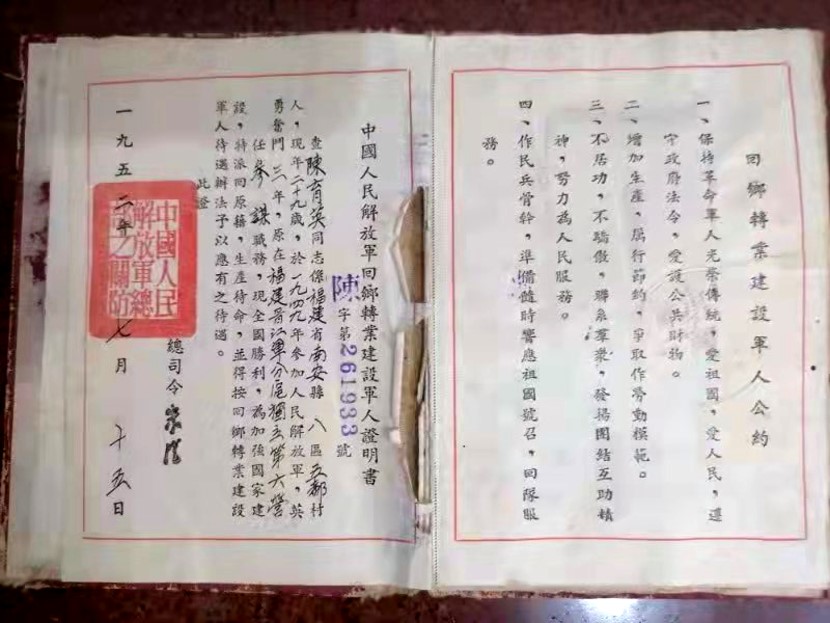 回鄉轉業建設軍人公約
一、保持革命軍人光榮傳統，愛祖國，愛人民，遵
守政府法令，愛護公共財物。
二、增加生產，厲行節約，爭取作勞動模範。
三、不居功，不驕傲，聯系羣衆，發揚團結互助精
神，努力為人民服務。
四、作民兵骨幹，準備隨時響應祖國號召，回隊服
務。
中國人民解放軍回鄉轉業建設軍人證明書
陳字第261933號
查陳育英同志係福建省南安縣八區五都村
人，現年二十九歲，於一九四九年參加人民解放軍，英
勇奮鬥三年，原在福建晉江軍分區獨立第六營
任參謀職務，現全國勝利，為加強國家建
設，特派回原籍，生產待命，並得按回鄉轉業建設
軍人待遇辦法予以應有之待遇。
此證
總司令 朱德
中國人民
解放軍總
部之關防
一九五二年七月十五日